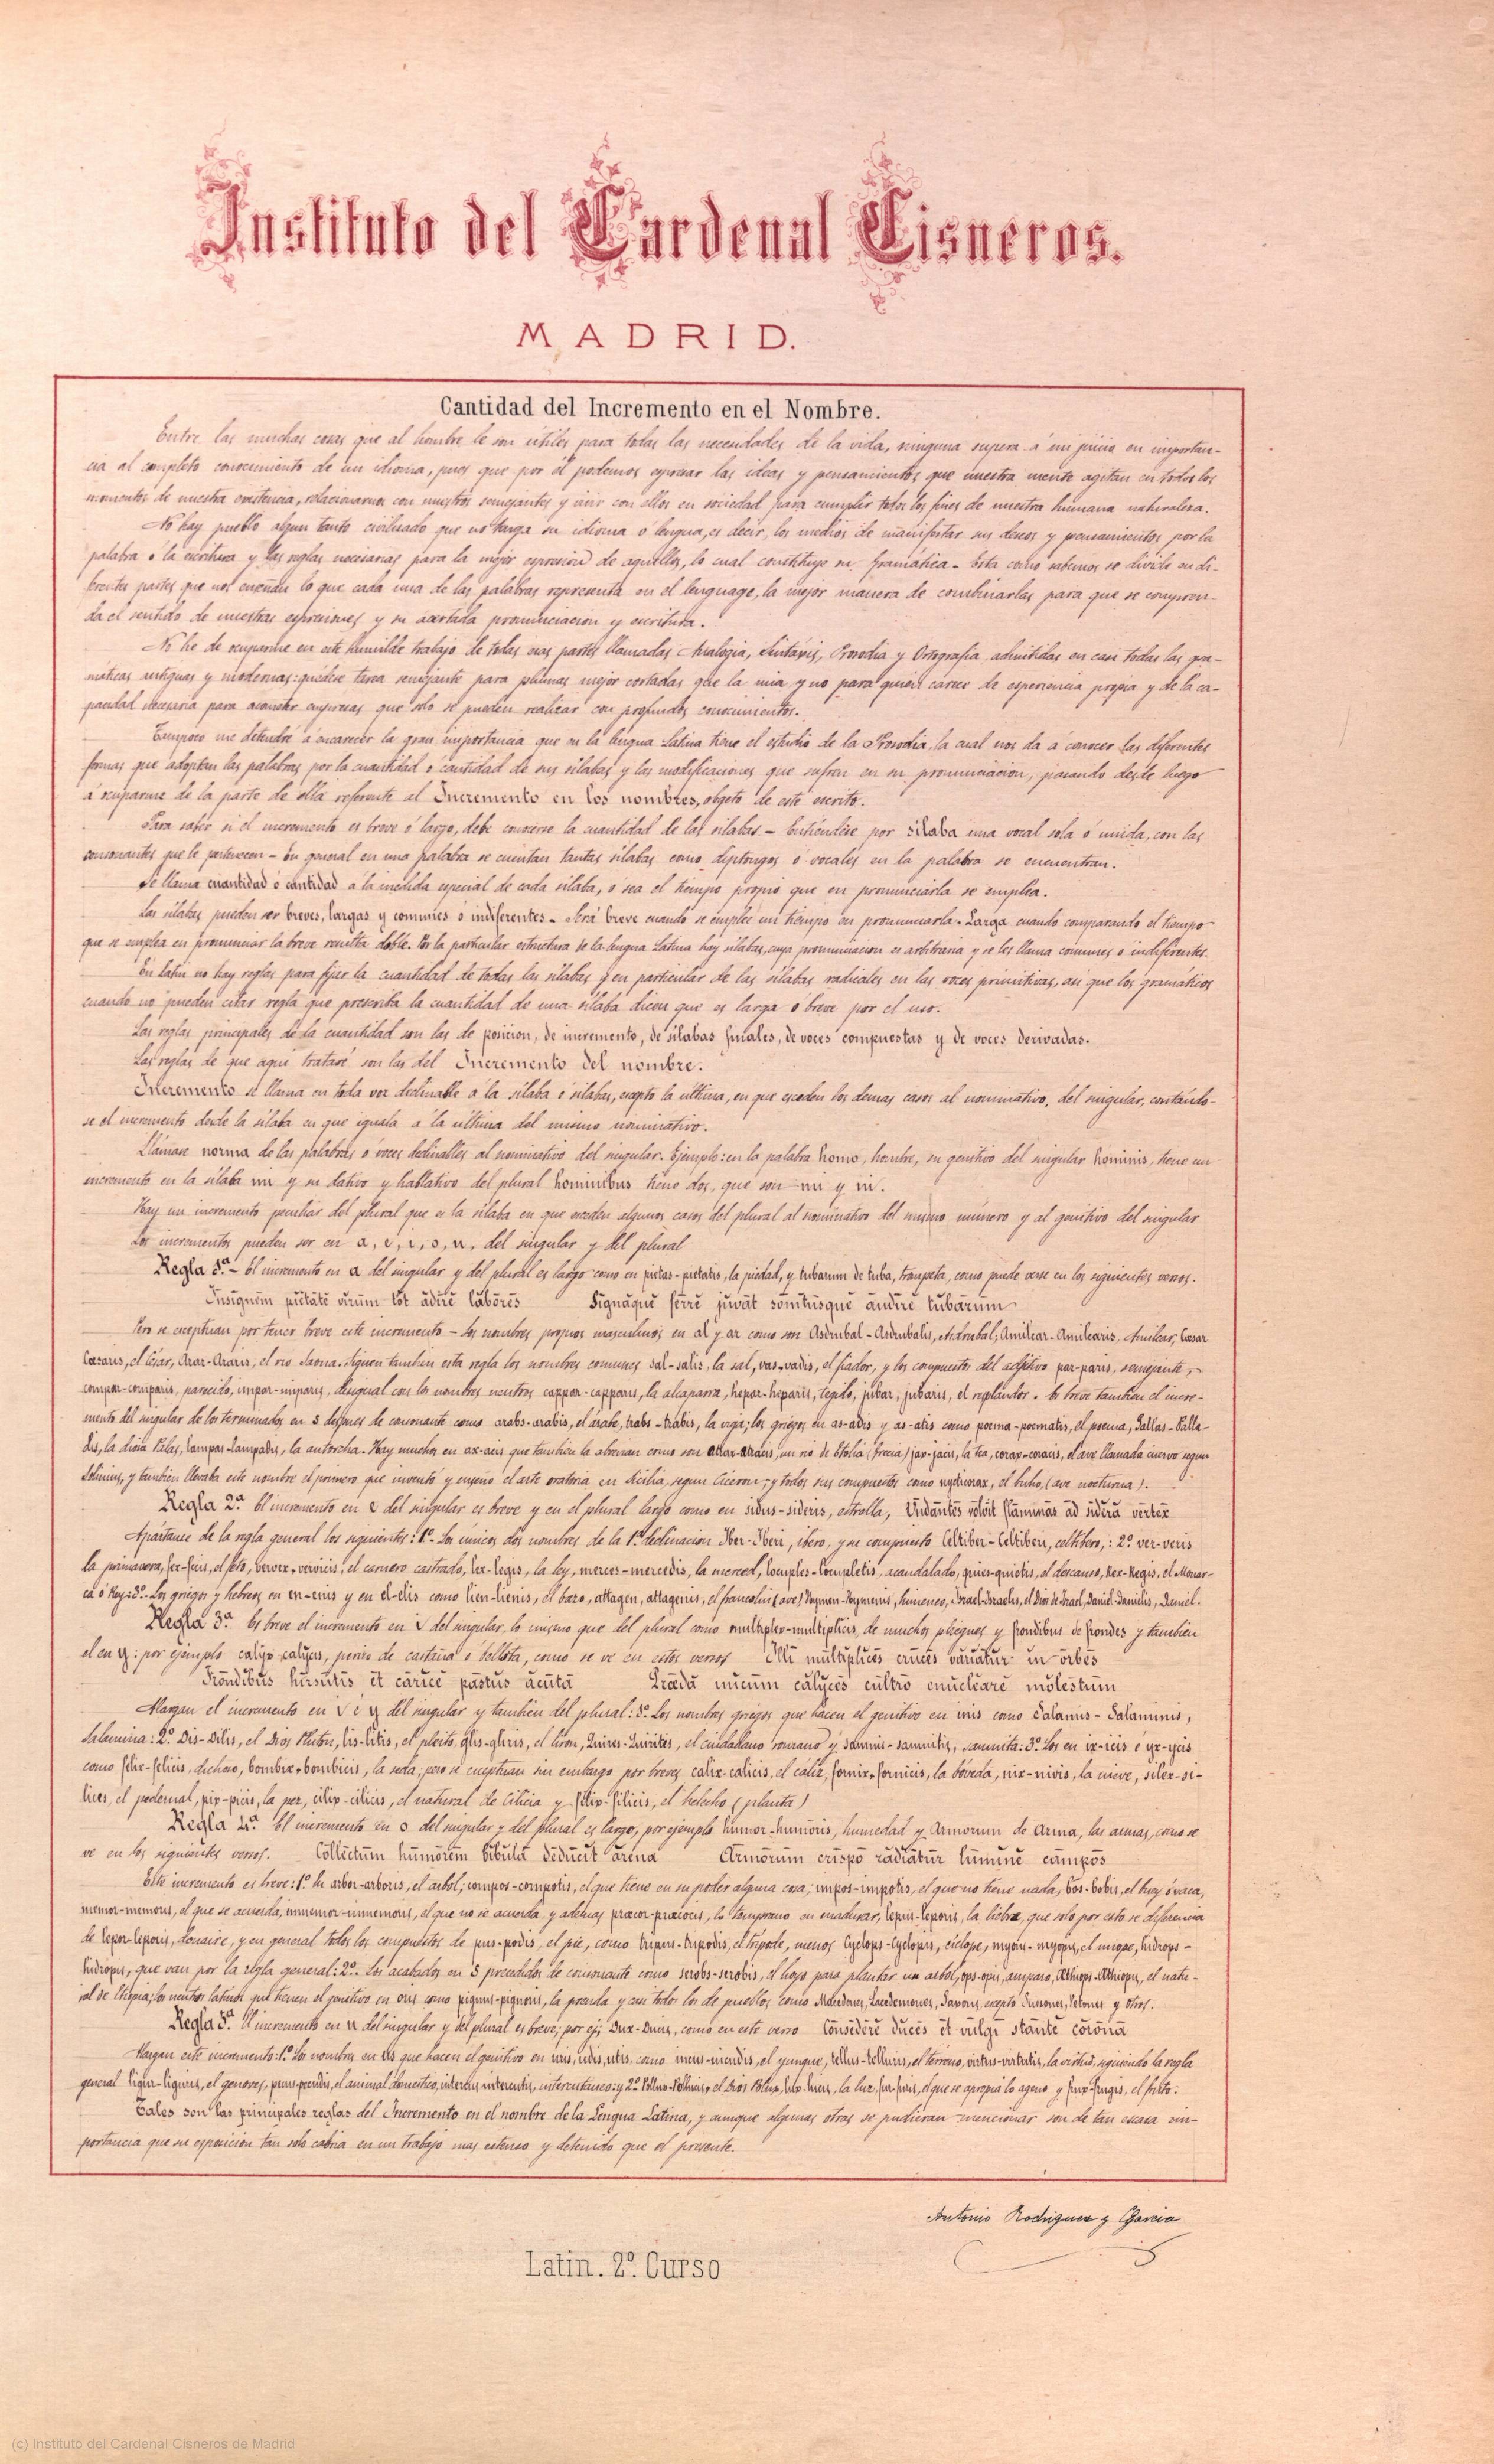 Instituto del Cardenal Cisneros.
MADRID.
Cantidad del Incremento en el Nombre.
Entre las muchas cosas que al hombre le son útiles para todas las necesidades de la vida, ninguna supera á mi juicio en importan-
cia al completo conocimiento de un idioma, pues que por él podemos espresar las ideas y pensamientos que nuestra mente agitan en todos los
momentos de nuestra existencia, relacionarnos con nuestros semejantes y vivir con ellos en sociedad para cumplir todos los fines de nuestra humana naturaleza.
No hay pueblo algun tanto civilizado que no tenga su idioma ó lengua, es decir, los medios de manifestar sus deseos y pensamientos por la
palabra ó la escritura y las reglas necesarias para la mejor espresion de aquellos, lo cual constituye su gramática - Esta como sabemos se divide en di-
ferentes partes que nos enseñan lo que cada una de las palabras representa en el lenguage, la mejor manera de combinarlas para que se compren-
da el sentido de nuestras espresiones y su acertada pronunciacion y escritura.
No he de ocuparme en este humilde trabajo de todas esas partes llamadas Analogia, Sintáxis, Prosodia y Ortografia admitidas en casi todas las gra-
máticas antiguas y modernas: quédese tarea semejante para plumas mejor cortadas que la mia y no para quien carece de esperiencia propia y de la ca-
pacidad necesaria para acometer empresas que solo se pueden realizar con profundos conocimientos.
Tampoco me detendré á encarecer la gran importancia que en la lengua Latina tiene el estudio de la Prosodia, la cual nos da á conocer las diferentes
formas que adoptan las palabras por la cuantidad ó cantidad de sus sílabas y las modificaciones que sufren en su pronunciacion, pasando desde luego
á ocuparme de la parte de ella referente al Incremento en los nombres, objeto de este escrito.
Para saber si el incremento es breve ó largo, debe conocerse la cuantidad de las silabas - Entiéndese por sílaba una vocal sola ó unida, con las
consonantes que le pertenecen - En general en una palabra se cuentan tantas sílabas como diptongos ó vocales en la palabra se encuentran.
Se llama cuantidad ó cantidad á la medida especial de cada sílaba, ó sea el tiempo propio que en pronunciarla se emplea.
Las sílabas pueden ser breves, largas y comunes ó indiferentes - Será breve cuando se emplee un tiempo en pronunciarla. Larga cuando comparando el tiempo
que se emplea en pronunciar la breve resulta doble. Por la particular estructura de la lengua Latina hay sílabas, cuya pronunciacion es arbitraria y se les llama comunes ó indiferentes.
En latin no hay reglas para fijar la cuantidad de todas las sílabas y en particular de las sílabas radicales en las voces primitivas, asi que los gramáticos
cuando no pueden citar regla que prescriba la cuantidad de una sílaba dicen que es larga ó breve por el uso.
Las reglas principales de la cuantidad son las de posicion, de incremento, de silabas finales, de voces compuestas y de voces derivadas.
Las reglas de que aqui trataré son las del Incremento del nombre.
Incremento se llama en toda voz declinable á la sílaba ó sílabas, escepto la última, en que esceden los demas casos al nominativo, del singular, contándo-
se el incremento desde la sílaba en que iguala á la última del mismo nominativo.
Llámase norma de las palabras ó voces declinables al nominativo del singular. Ejemplo: en la palabra homo, hombre, su genitivo del singular hominis, tiene un
incremento en la sílaba mi y su dativo y hablativo del plural hominibus tiene dos, que son mi y ni.
Hay un incremento peculiar del plural que es la sílaba en que esceden algunos casos del plural al nominativo del mismo número y al genitivo del singular
Los incrementos pueden ser en a, e, i, o, u, del singular y del plural
Regla 1ª - El incremento en a del singular y del plural es largo como en pietas-pietatis, la piedad, y tubarum de tuba, trompeta, como puede verse en los siguientes versos.
Insignēm piētātē virum tot adirē labores Signaquē ferrē juvat somitusquē audirē tubārum
Pero se esceptuan por tener breve este incremento - Los nombres propios masculinos en al y ar como son Asdrubal-Asdrubalis, Asdrubal, Amilcar-Amilcaris, Amilcar, Cæsar
Cæsaris, el César, Arar-Araris, el rio Saona. Siguen tambien esta regla los nombres comunes sal-salis, la sal, vas-vadis, el fiador, y los compuestos del adjetivo par-paris, semejante,
compar-comparis, parecido, impar-imparis, desigual con los nombres neutros cappar-capparis, la alcaparra, hepar-heparis, jubar, jubaris, el resplandor. Es breve tambien el incre-
mento del singular de los terminados en s despues de consonante como arabs-arabis, el árabe, trabs-trabis, la viga; los griegos en as-adis y as-atis como poema-poematis, el poema, Pallas-Palla-
dis, la diosa Palas, lampas-lampadis, la antorcha. Hay muchos en ax-acis que tambien la abrevian como son atrax-atracis, un rio de Etolia (Grecia) , la tea, corax-coracis, el ave llamada cuervo segun
Solinius, y tambien llevaba este nombre el primero que invento y enseño el arte oratoria en Sicilia, segun Ciceron; y todos sus compuestos como nycticorax, el buho, (ave nocturna).
Regla 2ª El incremento en e del singular es breve y en el plural largo como en sidus-sideris, estrella, Undantes volvit flammas ad sidera vertex
Apártanse de la regla general los siguientes: 1º Los unicos dos nombres de la 1ª declinacion Iber-Iberi, ibero, y su compuesto Celtiber-Celtiberi, celtibero,: 2º ver-veris
la primavera, , vervex-vervicis, el carnero castrado, lex-legis, la ley, merces-mercedis, la merced, locuples-locupletis, acaudalado, quies-quietis, el descanso, Rex-Regis, el Monar-
ca ó Rey: 3º Los griegos y hebreos en en-enis y en el-elis como lien-lienis, el bazo, attagen, attagenis, el francolin (ave) Hymen-Hymenis, himeneo, Israel-Israelis, el Dios de Israel, Daniel-Danielis, Daniel.
Regla 3ª Es breve el incremento en i del singular, lo mismo que del plural como multiplex-multiplicis, de muchos pliegues y frondibus de frondes y tambien
el en y: por ejemplo calyx-calycis, perizo de castaña ó bellota, como se ve en estos versos Illi multiplices cruces variatur in orbes
Frondibus hirsutis et carice pastus acuta Præda nucum calyces cultro enucleare molestum
Alargan el incremento en i é y del singular y tambien del plural: 1º Los nombres griegos que hacen el genitivo en inis como Salamis-Salaminis,
Salamina: 2º Dis-Ditis, el Dios Pluton, lis-litis, el pleito, glis-gliris, el liron, Quires-Quirites, el ciudadano romano y samnis-samnitis, samnita: 3º Los en ix-icis é yx-ycis
como felix-felicis, dichoso, bombix-bombicis, la seda, pero se esceptuan sin embargo por breves calix-calicis, el cáliz, fornix-fornicis, la bóveda, nix-nivis, la nieve, silex-si-
lices, el pedernal, pix-picis, la pez, cilix-cilicis, el natural de Cilicia y filix-filicis, el helecho (planta)
Regla 4ª El incremento en o del singular y del plural es largo, por ejemplo humor-humoris, humedad y Armorum de Arma, las armas, como se
ve en los siguientes versos. Collectum humorem bibula deducit arena Armorum crispo radiatur lumine campos
Este incremento es breve: 1º En arbor-arboris, el arbol; compos-compotis, el que tiene en su poder alguna cosa, impos-impotis, el que no tiene nada, bos-bobis, el buey ó vaca,
memor-memoris, el que se acuerda, inmemor-inmemoris, el que no se acuerda y ademas præcox-præcocis, lo temprano en madurar, lepus-leporis, la liebre, que solo por esto se diferencia
de lepor-leporis, donaire, y en general todos los compuestos de pus-podis, el pie, como tripus-tripodis, el trípode, menos Cyclops-Cyclopis, ciclope, myops-myopis, el miope, hidrops-
hidropis, que van por la regla general: 2º Los acabados en s precedidos de consonante como scrobs-scrobis, el hoyo para plantar un arbol, ops-opis, amparo, Æthiops-Æthiopis, el natu-
ral de Etiopia; los neutros latinos que tienen el genitivo en oris como pignus-pignoris, la prenda y casi todos los de pueblos como Macedones, Lacedemones, Saxones, escepto y otros.
Regla 5ª El incremento en u del singular y del plural es breve, por ej; Dux-Ducis, como en este verso Consedere duces et vulgi stante corona
Alargan este incremento: 1º Los nombres en us que hacen el genitivo en uris, udis, utis, como incus-incudis, el yunque, tellus-telluris, el terreno, virtus-virtutis, la virtud, siguiendo la regla
general ligur-liguris, el genoves, pecus-pecudis, el animal domestico, intercus-intercutis, intercutaneo: y 2º Pollux-Pollucis, el Dios Polux, lux-lucis, la luz, fur-furis, el que se apropia lo ageno y frux-frugis, el fruto.
Tales son las principales reglas del Incremento en el nombre de la Lengua Latina, y aunque algunas otras se pudieran mencionar son de tan escasa im-
portancia que su esposicion tan solo cabria en un trabajo mas estenso y detenido que el presente.
Antonio Rodriguez y Garcia
Latin. 2º Curso
(c) Instituto del Cardenal Cisneros de Madrid